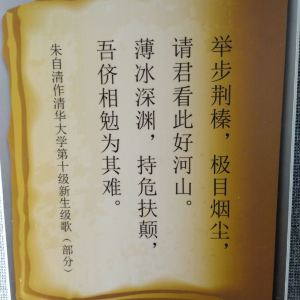 举步荆榛，极目烟尘，
请君看此好河山。
薄冰深渊，持危扶颠，
吾侪相勉为其难。
朱自清作清华大学第十级新生级歌（部分）